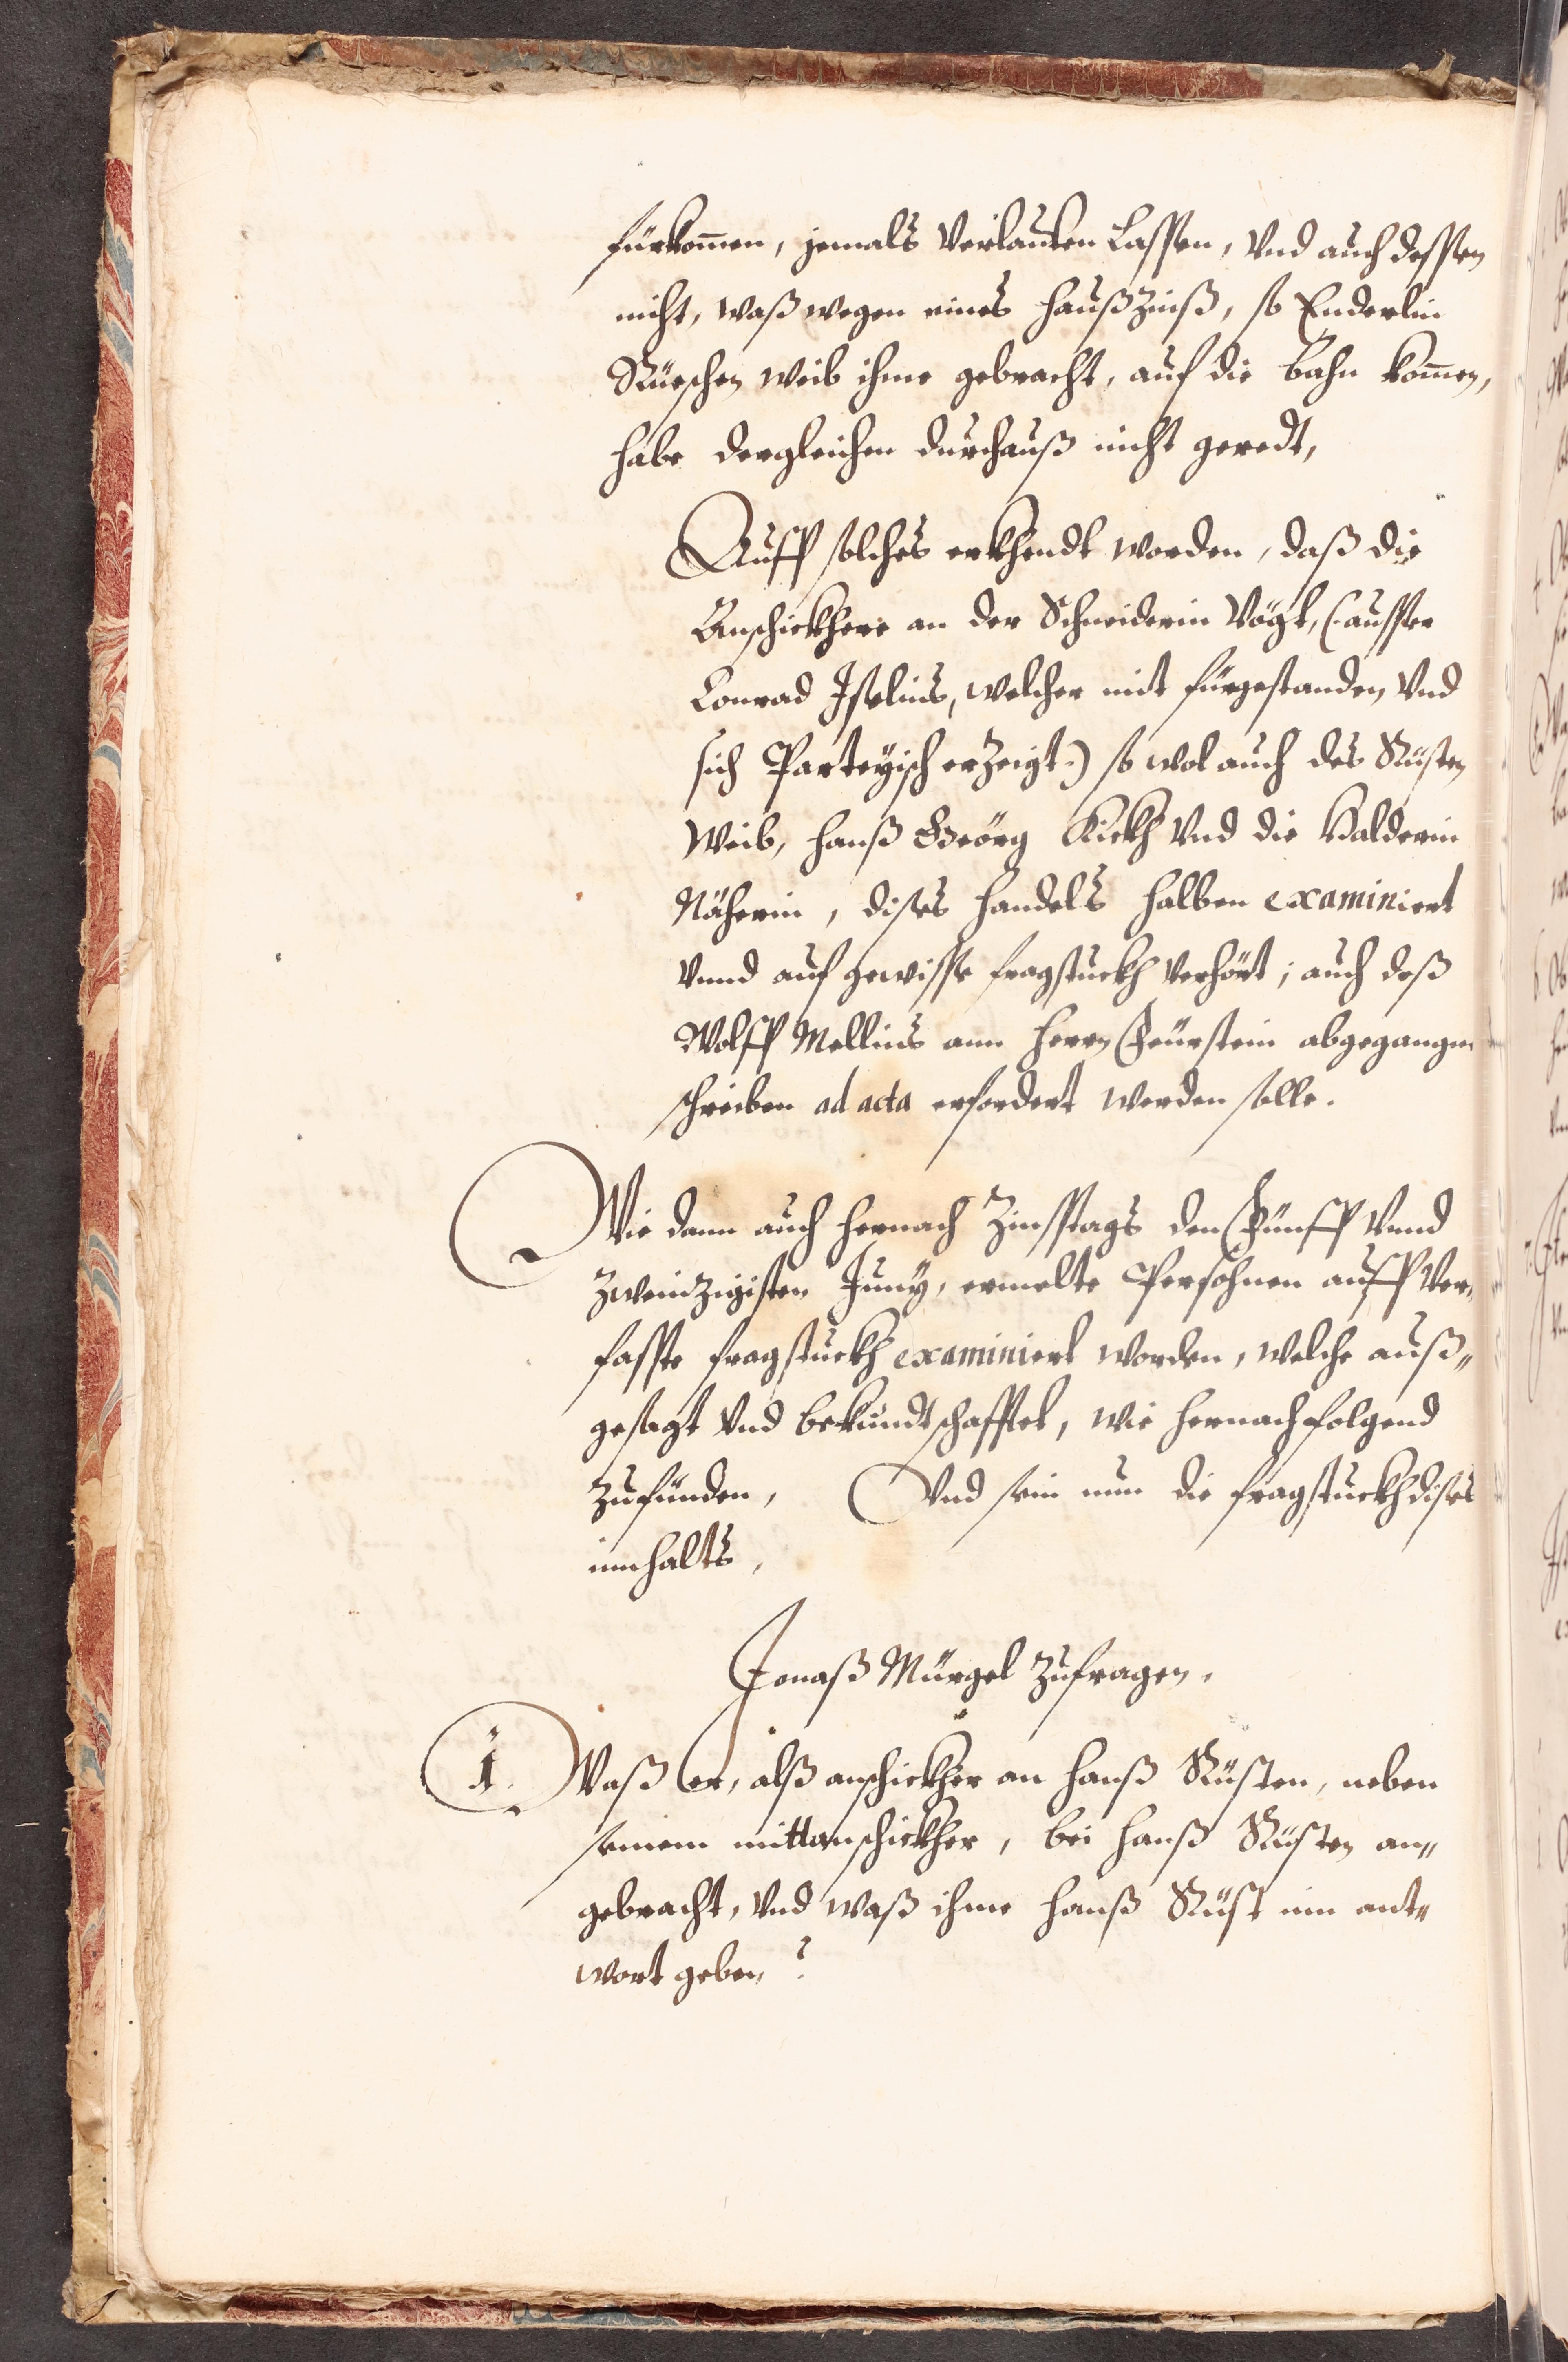 fürkom̄en, jemals verlauten Lassen, vnd auch dessen
nicht, waß wegen eines haußzinß, so Enderlin
Rüeschen weib ihme gebracht, auf die bahn kom̄en,
habe dergleichen durchauß nicht geredt,
Auff solches erkhendt worden, daß die
Anschickhere an der Schneiderin Vögt, (ausser
Conrad Iselins, welcher mit fürgestanden, vnd
sich Parteyisch erzeigt.) so wol auch des Rüsten
Weib, hanß Geörg Kickh vnd die Halderin
Näherin, dises handels halben examiniert
vnnd auf gewisse fragstuckh verhört; auch daß
Wolff Mellins ann herrn Feürstein abgegangen
schreiben ad acta erfordert werden solle.
Wie dann auch hernach Zinsstags den Fünff vnnd
zweinzigisten Juny, ermelte Persohnen auff ver„
fasste fragstuckh examiniert worden, welche auß„
gesagt vnd bekundtschafftet, wie hernachfolgend
zufünden, Vnd sein nun die fragstuckh dises
innhalts,
Jonaß Mürgel zufragen.
1. Waß Er, alß anschickher an hanß Rüsten, neben
seinem mittanschickher, bei hanß Rüsten an„
gebracht, vnd waß ihme hanß Rüst inn ant„
wort geben?